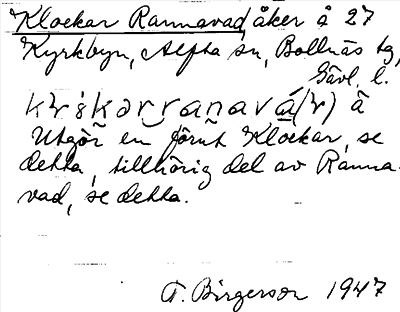 Klockar Rannavad, åker å 27
Kyrkbyn, Alfta sn, Bollnäs tg,
Gävl. l.
å
Utgör en förut Klockar, se
detta, tillhörig del av Ranna-
vad, se detta.
T. Birgerson 1947